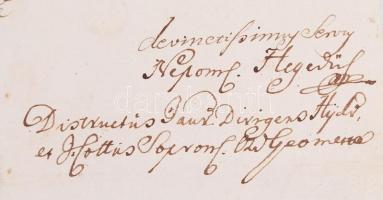 devinctissimus Servus
Nepom. Hegedüs
Districtus Jaur. Dirigens Hydr.
et I. Cottus Sopron. Ord Geometra